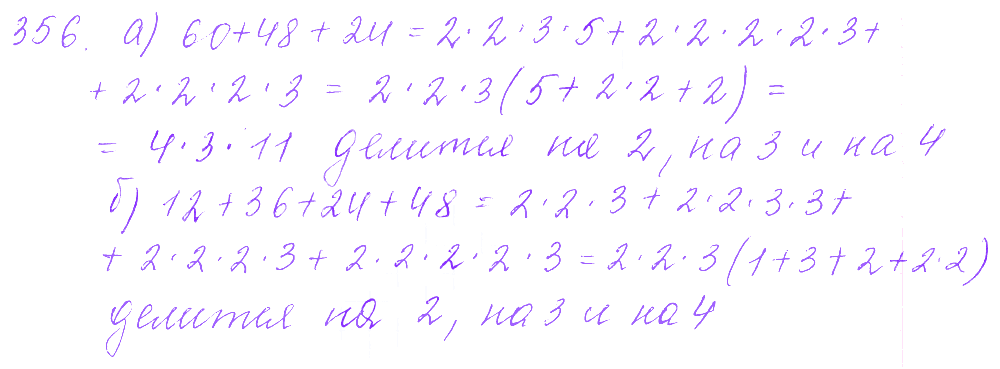 356. а) 60+48+24=2·2·3·5+2·2·2·2·3+
+2·2·2·3=2·2·3(5+2·2+2)=
=4·3·11 делится на 2, на 3 и на 4
б) 12+36+24+48=2·2·3+2·2·3·3+
+2·2·2·3+2·2·2·2·3=2·2·3(1+3+2+2·2)
делится на 2, на 3 и на 4